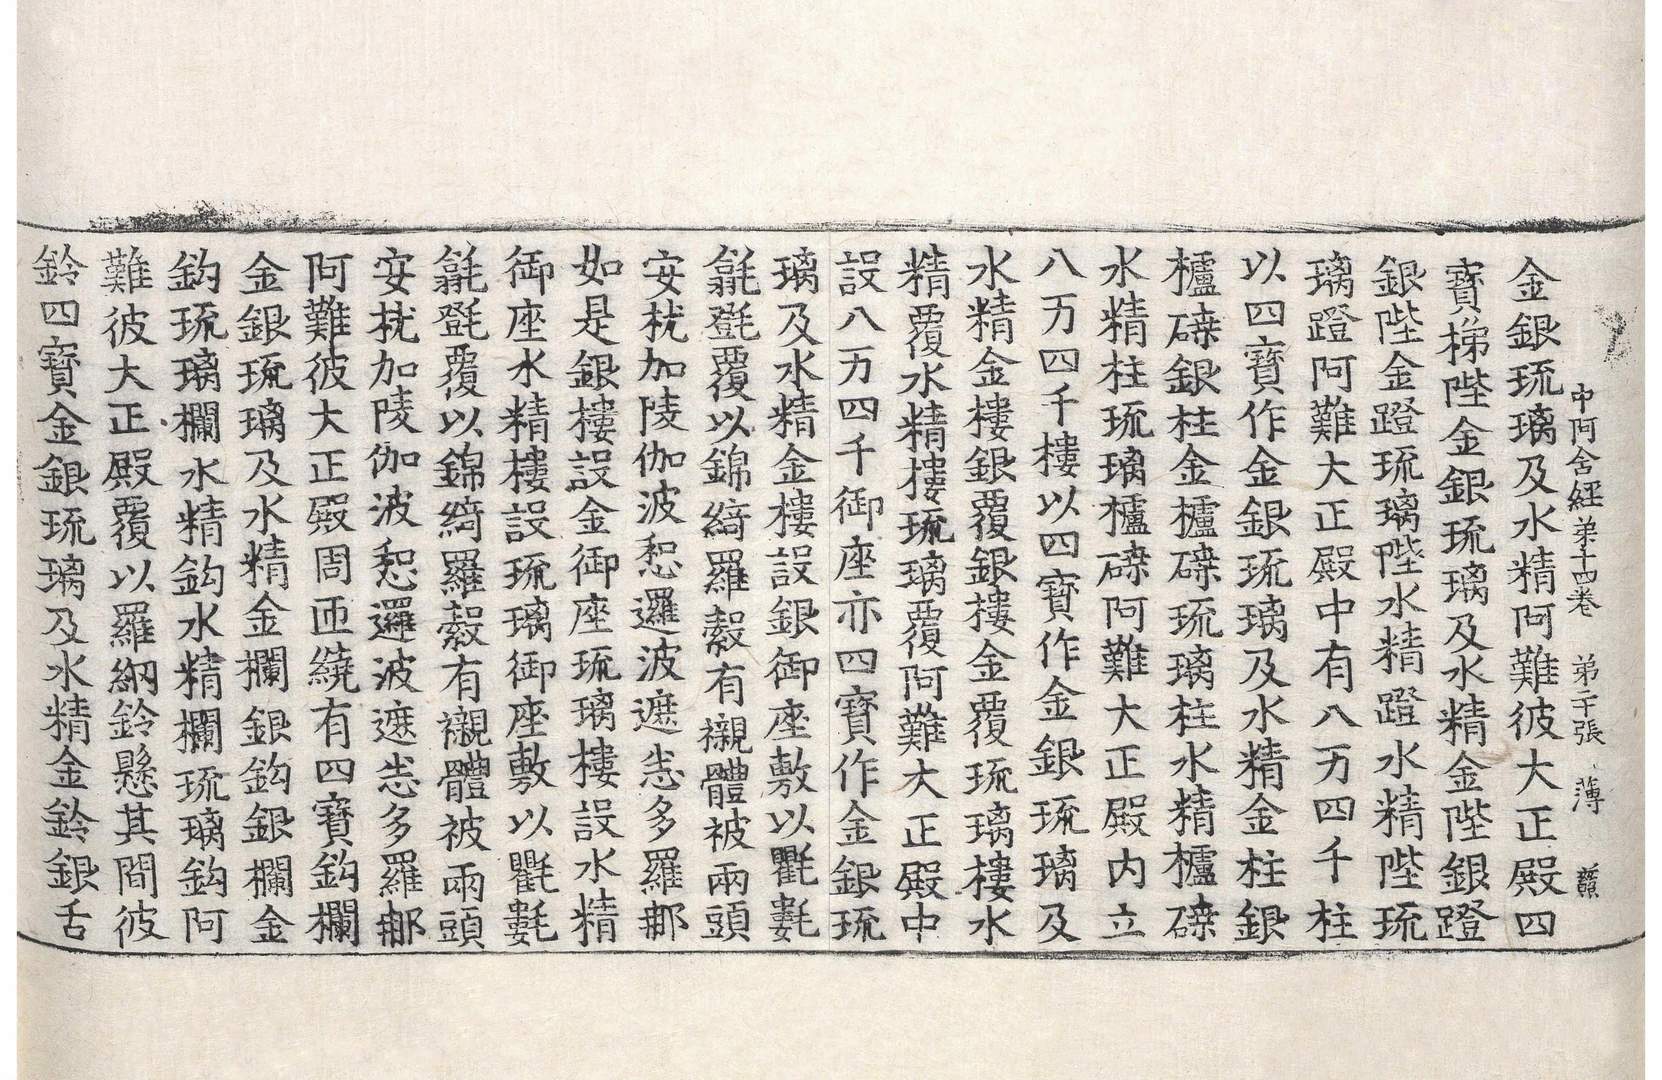 中阿含經弟十四卷 弟二十張 薄
金銀琉璃及水精阿難彼大正殿四
寶梯陛金銀琉璃及水精金陛銀蹬
銀陛金蹬琉璃陛水精蹬水精陛琉
璃蹬阿難大正殿中有八万四千柱
以四寶作金銀琉璃及水精金柱銀
櫨磉銀柱金櫨磉琉璃柱水精櫨磉
水精柱琉璃櫨磉阿難大正殿内立
八万四千樓以四寶作金銀琉璃及
水精金樓銀覆銀樓金覆琉璃樓水
精覆水精樓琉璃覆阿難大正殿中
設八万四千御座亦四寶作金銀琉
璃及水精金樓設銀御座敷以氍氀
毾㲪覆以錦綺羅縠有襯體被兩頭
安枕加陵伽波惒邏波遮悉多羅那
如是銀樓設金御座琉璃樓設水精
御座水精樓設琉璃御座敷以氍氀
毾㲪覆以錦綺羅縠有襯體被兩頭
安枕加陵伽波惒邏波遮悉多羅那
阿難彼大正殿周匝繞有四寶鉤欄
金銀琉璃及水精金欄銀鉤銀欄金
鉤琉璃欄水精鉤水精欄琉璃鉤阿
難彼大正殿覆以羅網鈴懸其間彼
鈴四寶金銀琉璃及水精金鈴銀舌